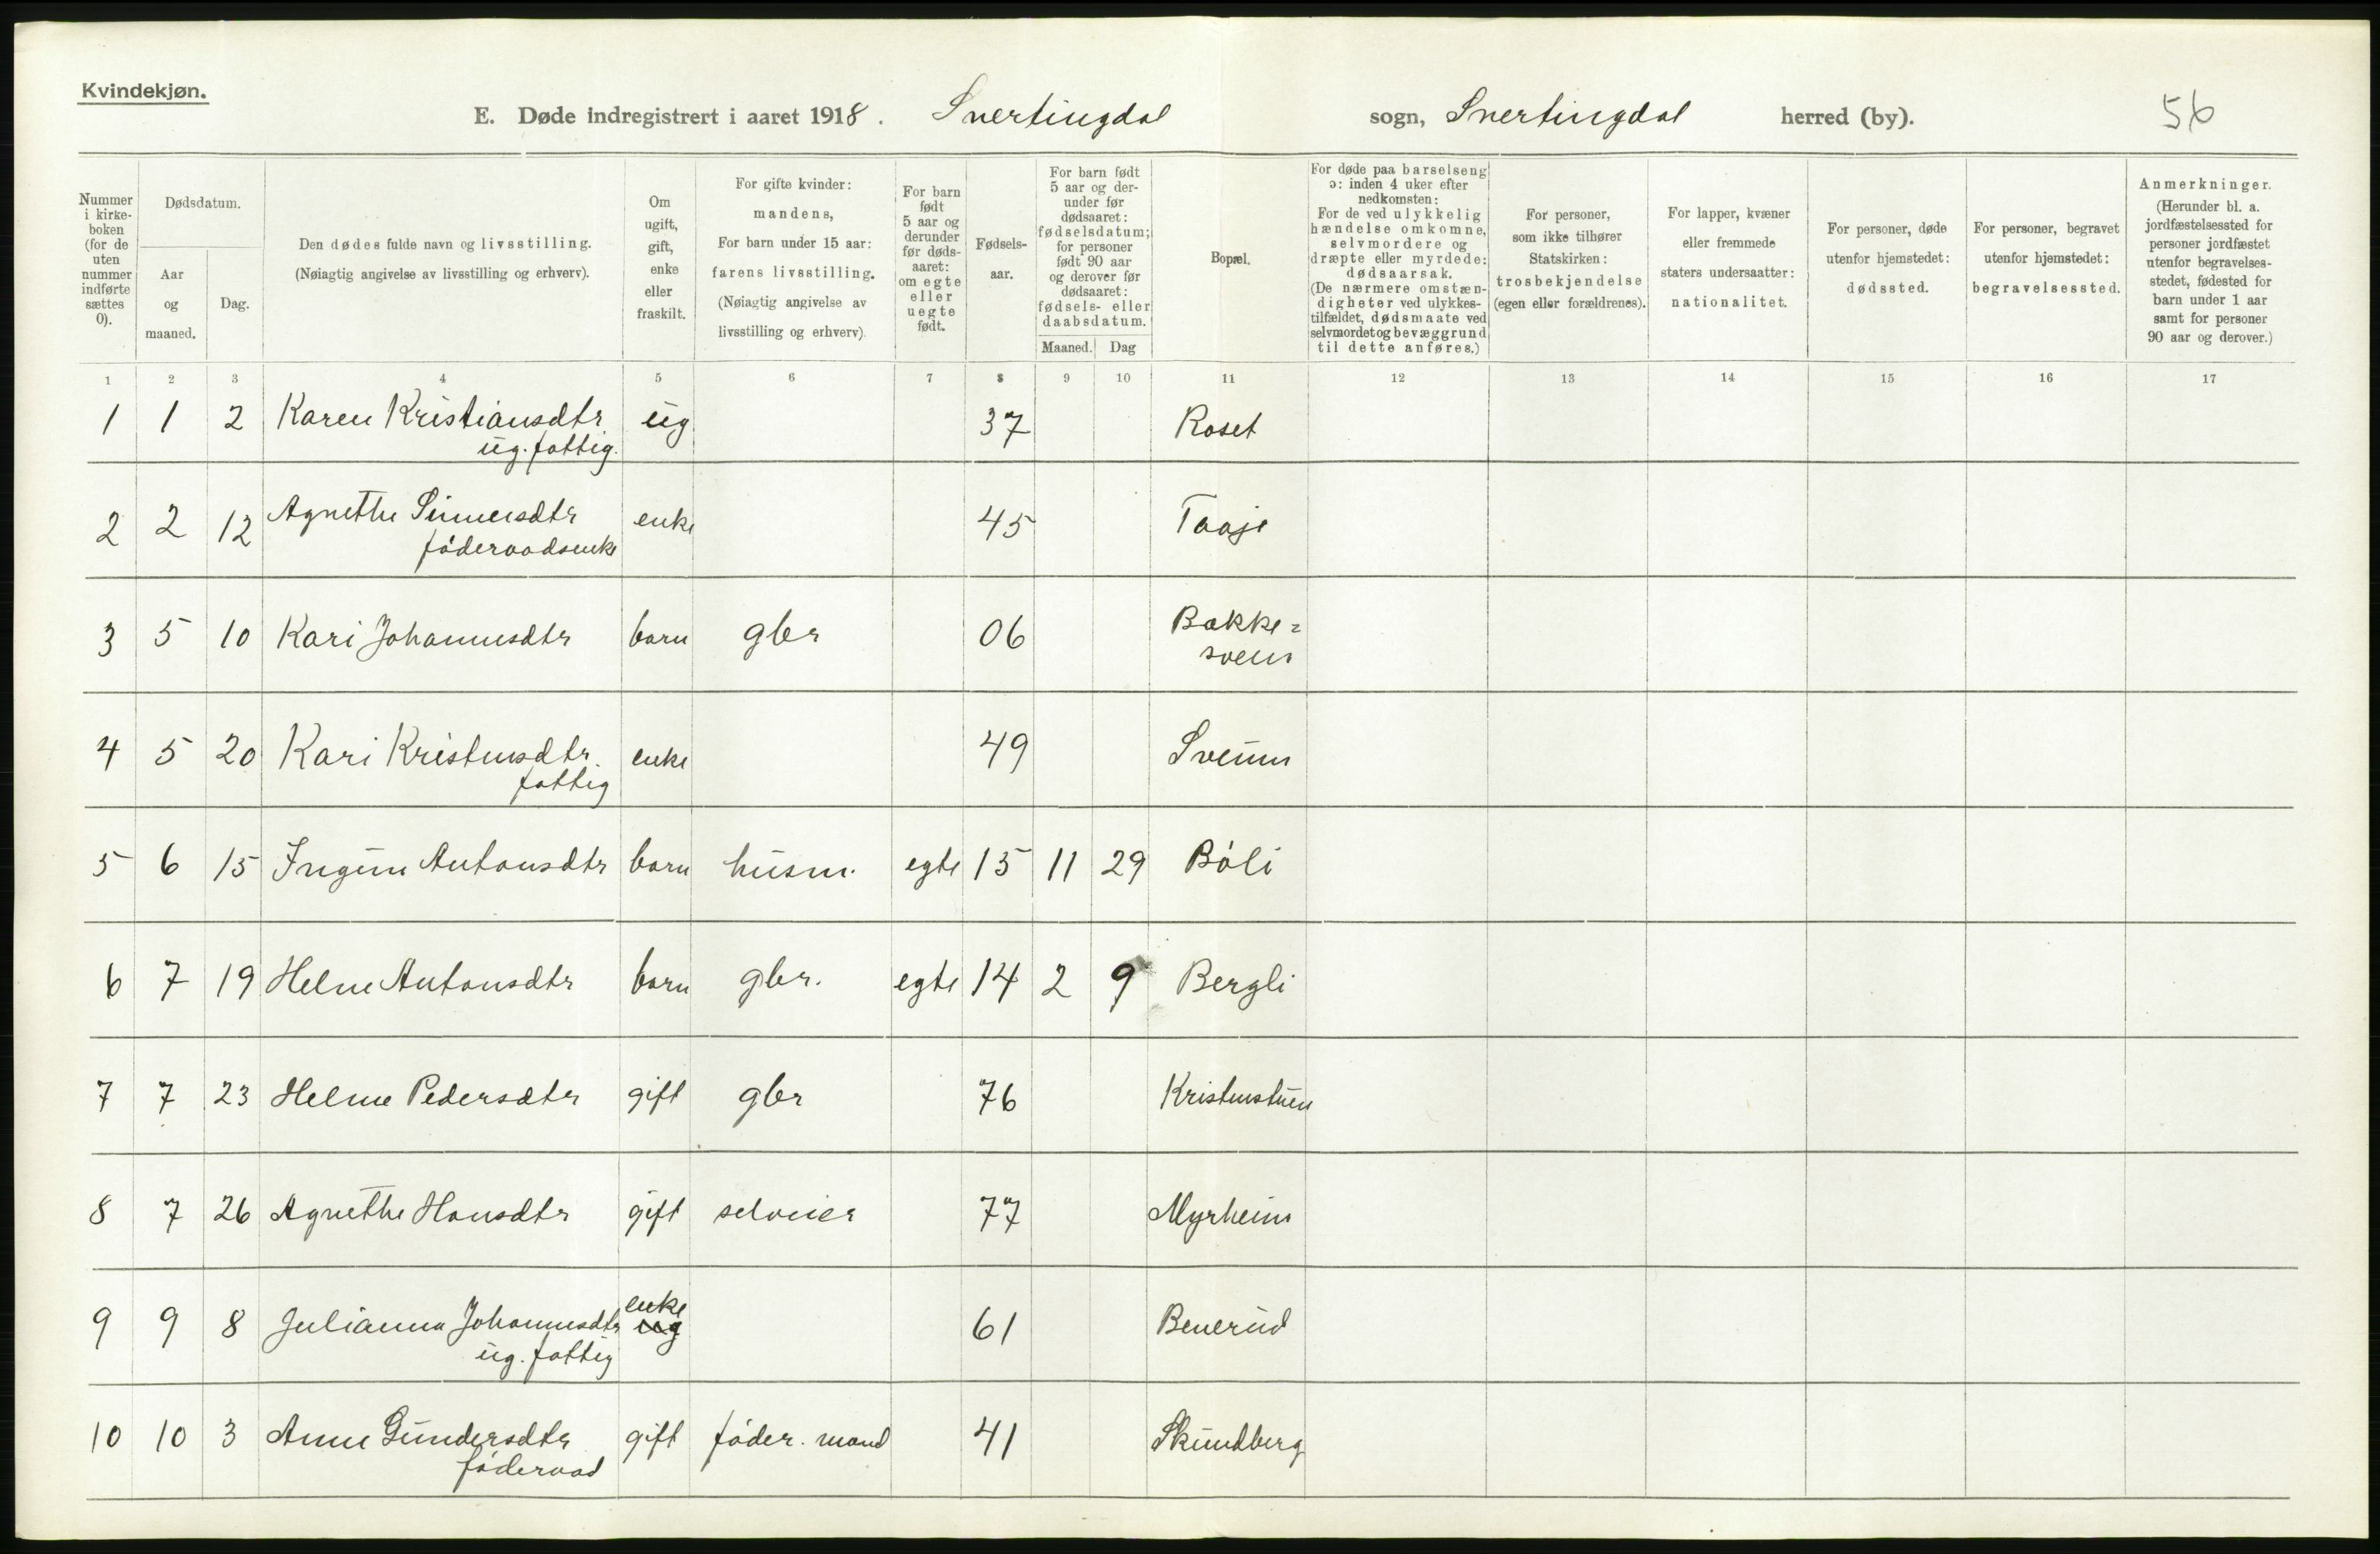 Kvindekjøn.
E. Døde indregistrert i aaret 1918. Snertingdal sogn, Snertingdal herred (by). 56
Nummer i kirke-boken (for de uten nummer indførte sættes 0).
Dødsdatum.
Aar og maaned.
Dag.
Den dødes fulde navn og livsstilling.
(Nøiagtig angivelse av livsstilling og erhverv).
Om ugift, gift, enke eller fraskilt.
For gifte kvinder: mandens,
For barn under 15 aar: farens livsstilling.
(Nøiagtig angivelse av livsstilling og erhverv).
For barn født 5 aar og derunder før døds-aaret: om egte eller uegte født.
Fødsels-aar.
For barn født 5 aar og der-under før dødsaaret: fødselsdatum; for personer født 90 aar og derover før dødsaaret: fødsels- eller daabsdatum.
Maaned. Dag
Bopæl.
For døde paa barselseng ɔ: inden 4 uker efter nedkomsten:
For de ved ulykkelig hændelse omkomne, selvmordere og dræpte eller myrdede: dødsaarsak.
(De nærmere omstæn-digheter ved ulykkes-tilfældet, dødsmaate ved selvmordet og bevæggrund til dette anføres.)
For personer, som ikke tilhører Statskirken: trosbekjendelse (egen eller forældrenes).
For lapper, kvæner eller fremmede staters undersaatter: nationalitet.
For personer, døde utenfor hjemstedet: dødssted.
For personer, begravet utenfor hjemstedet: begravelsessted.
Anmerkninger.
(Herunder bl. a. jordfæstelsessted for personer jordfæstet utenfor begravelses-stedet, fødested for barn under 1 aar samt for personer 90 aar og derover.)
1 2 3 4 5 6 7 8 9 10 11 12 13 14 15 16 17
1 1 2 Karen Kristiansdtr ug 37 Roset
ug. fattig.
2 2 12 Agnethe Simensdtr enke 45 Taaje
föderaadsenke
3 5 10 Kari Johannesdtr barn gbr 06 Bakke=
sveen
4 5 20 Kari Kristensdtr. enke 49 Sveum
fattig
5 6 15 Ingun Antonsdtr barn husm. egte 15 11 29 Böli
6 7 19 Helene Antonsdtr barn gbr. egte 14 2 9 Bergli
7 7 23 Helene Pedersdtr gift gbr 76 Kristenstuen
8 7 26 Agnethe Hansdtr gift selveier 77 Myrheim
9 9 8 Julianna Johannesdtr enke ug 61 Benerud
ug. fattig
10 10 3 Anne Gundersdtr gift föder. mand 41 Skundberg
föderaad